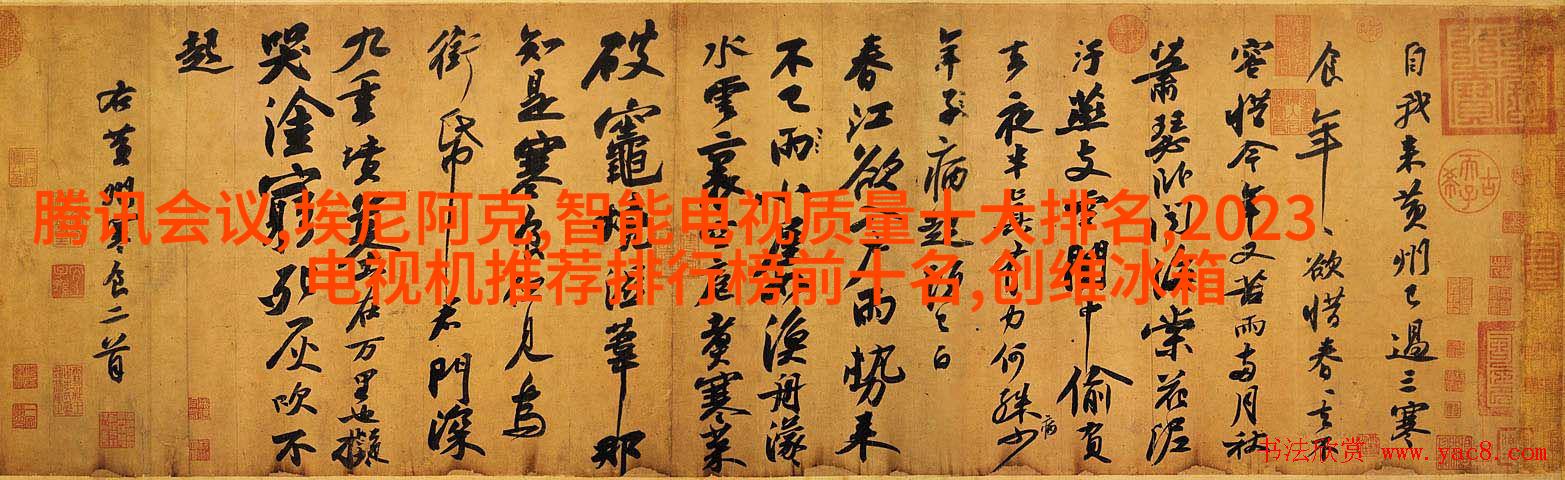 腾讯会议,埃尼阿克,智能电视质量十大排名,2023
电视机推荐排行榜前十名,创维冰箱
自我来黃州已過三寒
食年、欲惜春、去不
容惜今年又苦雨兩月秋
蕭瑟卧聞海棠花泥
汙燕支雪闇中偷負
去夜半真有力何殊少
年子病起頭已白
春江欲入戶雨勢来
不已雨小屋如漁舟濛
水雲裏空庖煮寒菜
破竈燒濕葦那
知是寒食但見烏
銜帋君門深
九重墳墓在万里也擬
哭塗窮死灰吹不
起
右黃州寒食二首
书法欣赏 www.yac8.com